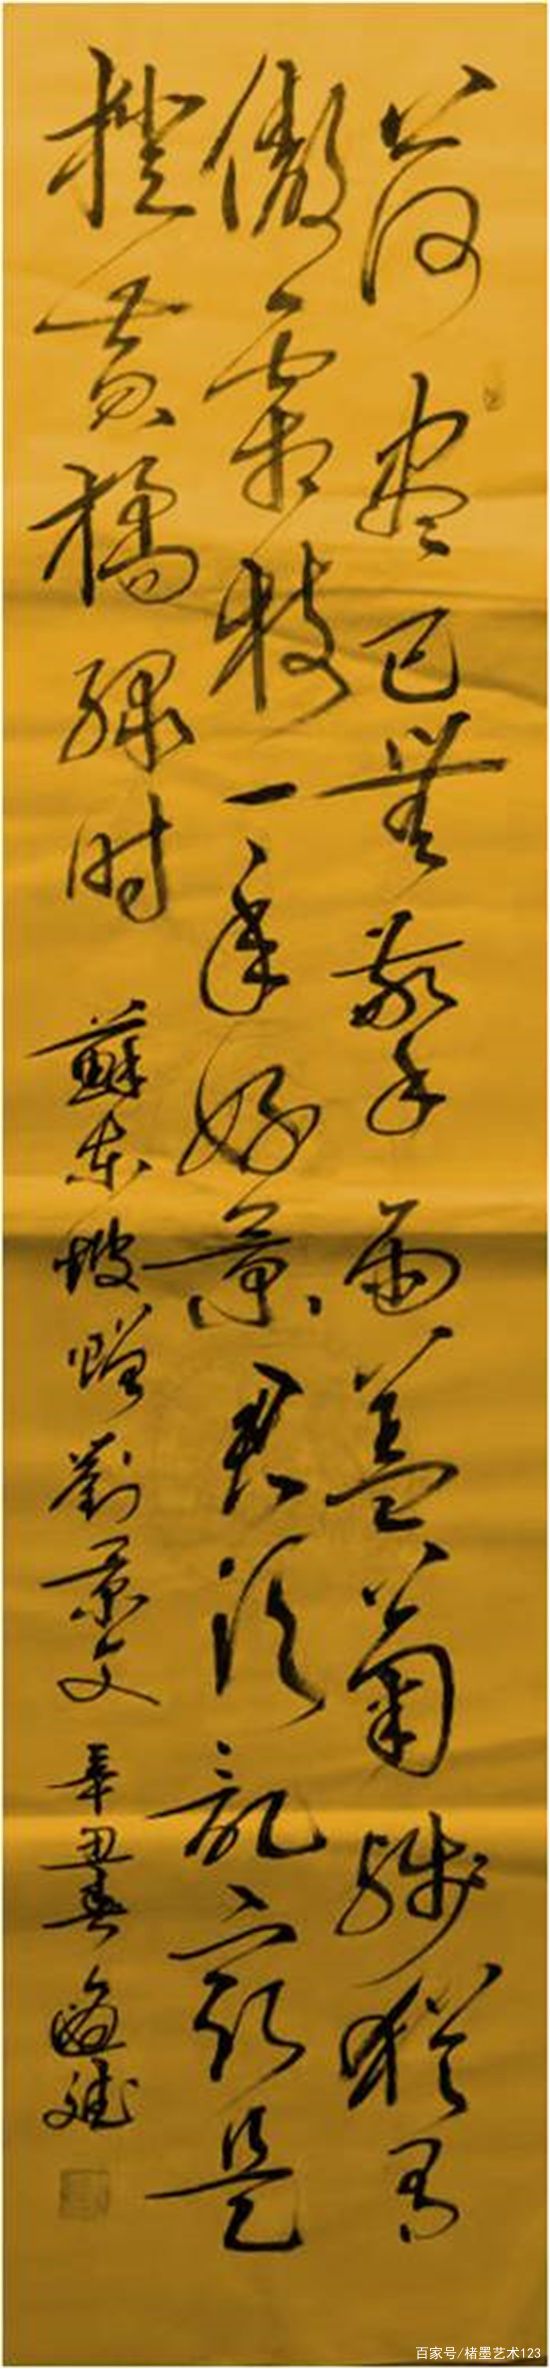 荷尽已无擎雨盖菊残犹有
傲霜枝一年好景君须记最是
橙黄橘绿时 蘇东坡赠劉景文 辛丑春
百家号/楮墨艺术123